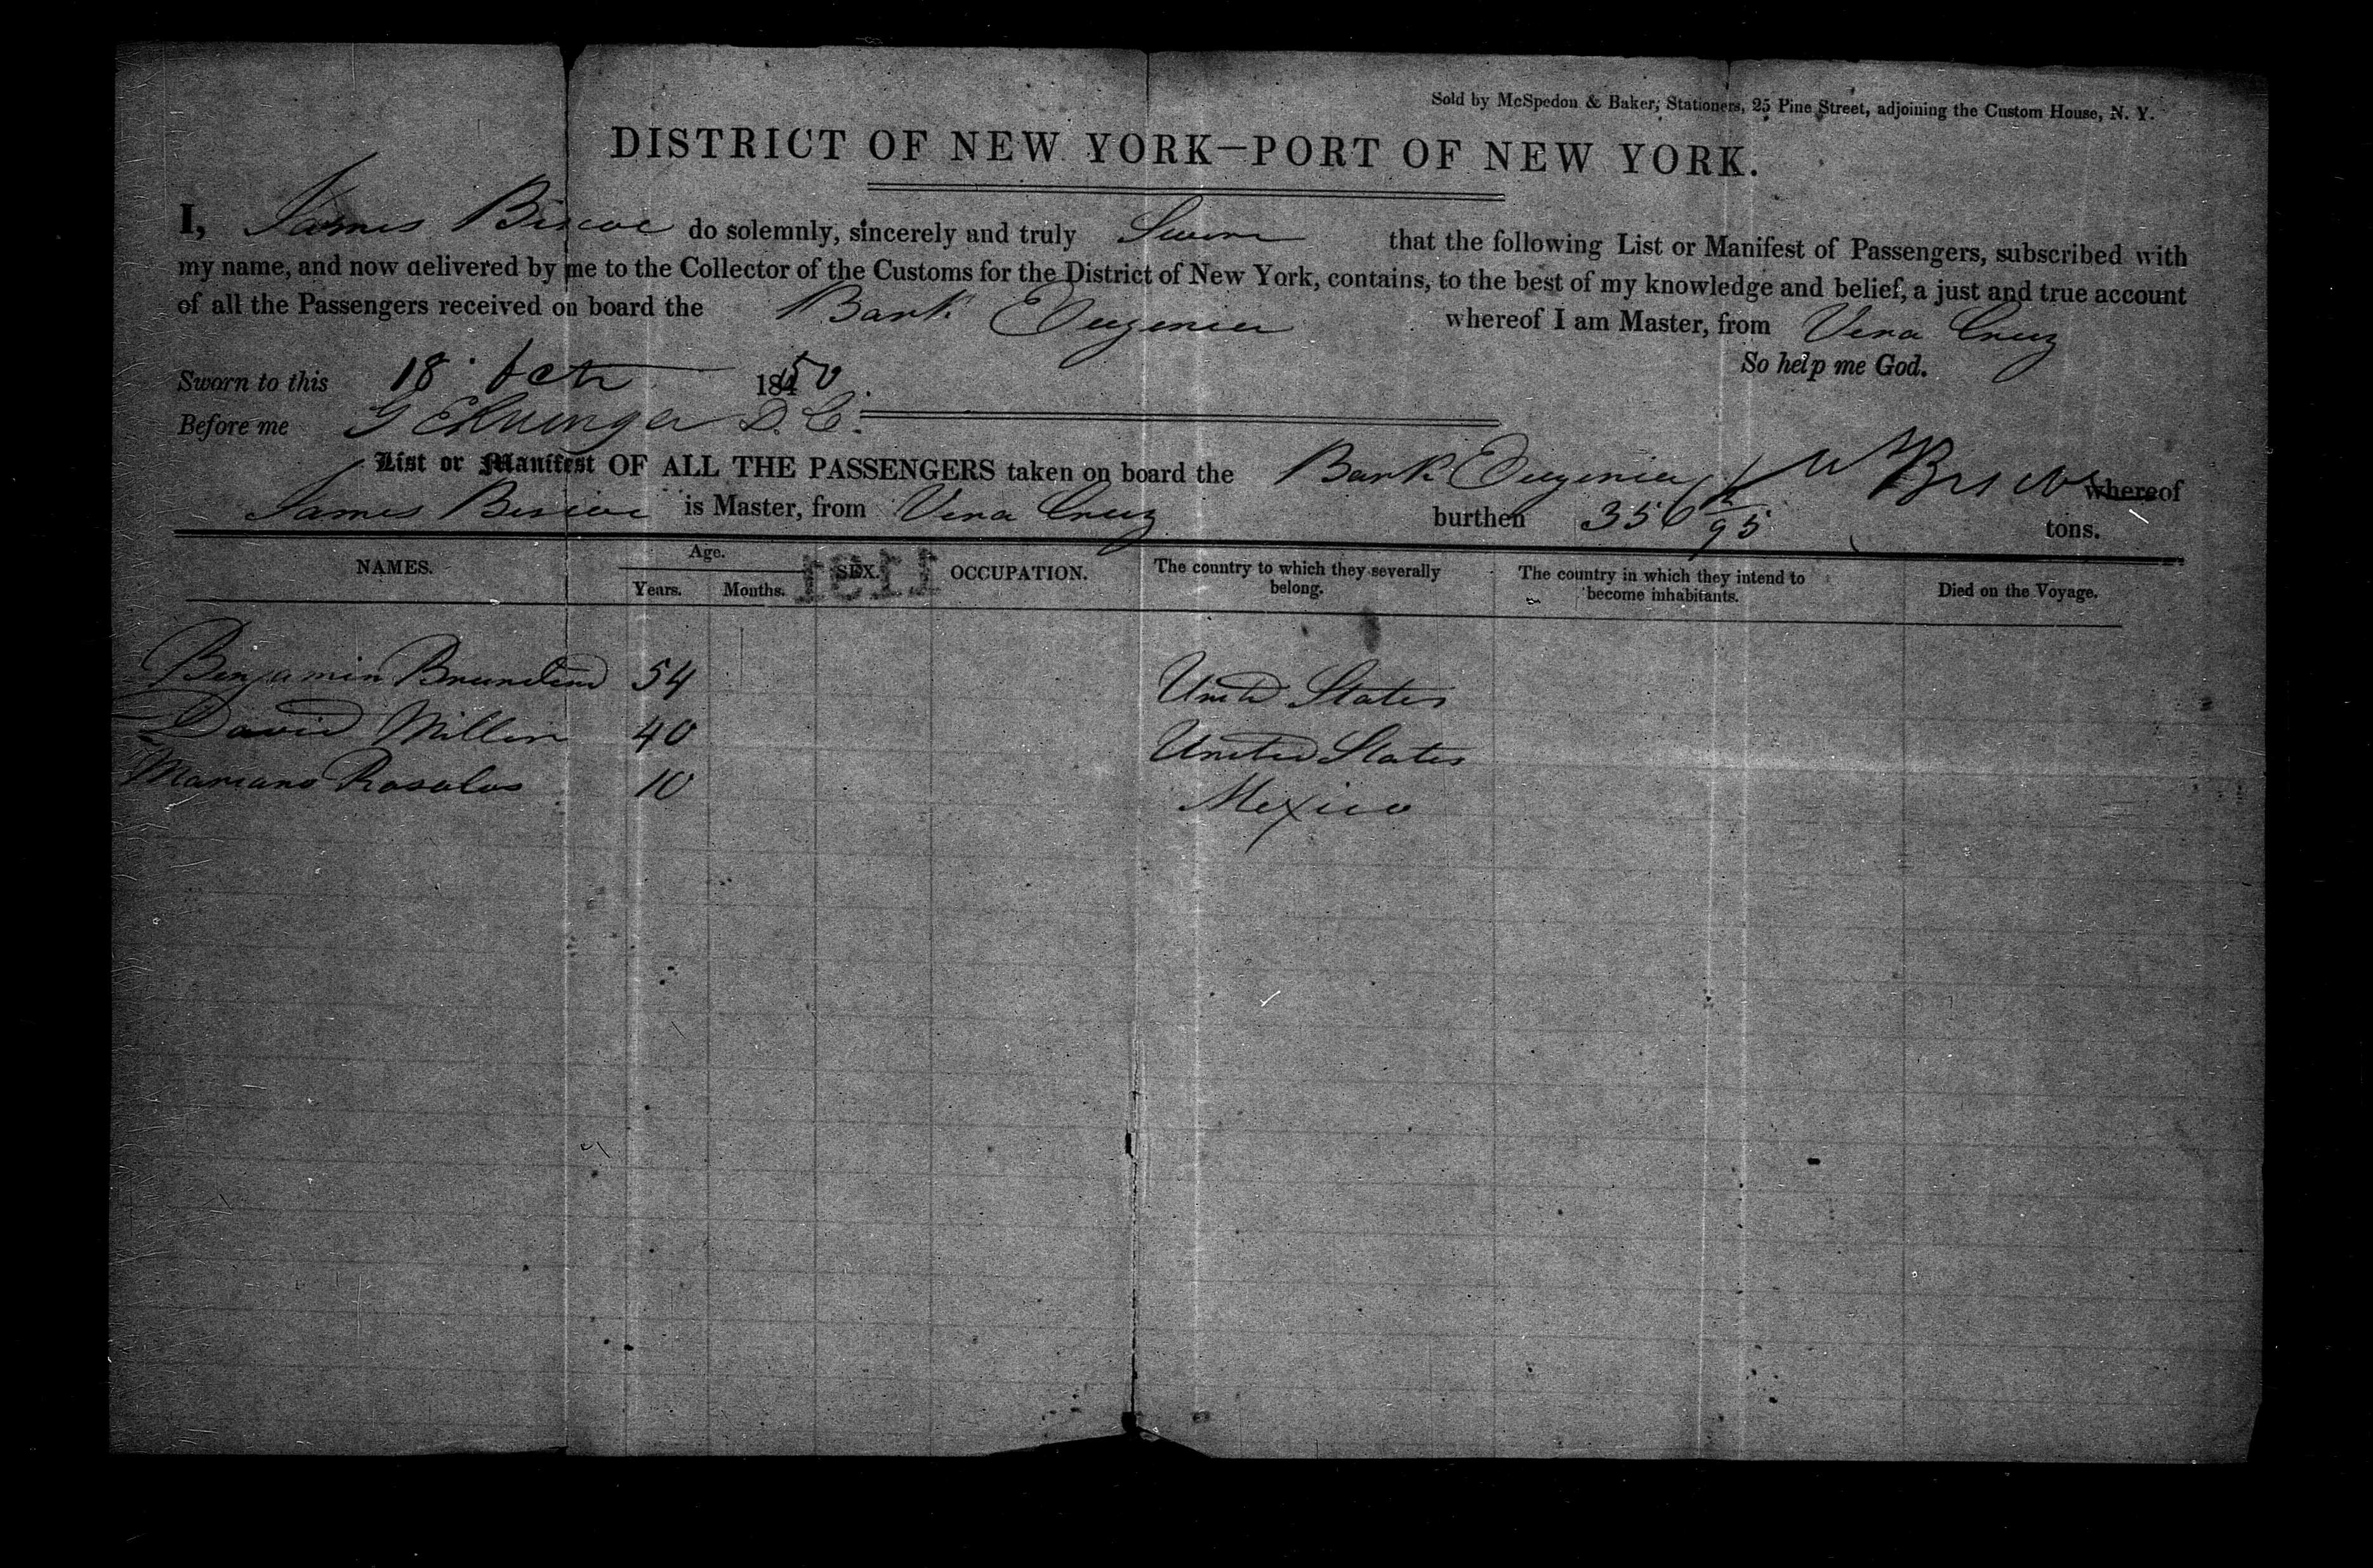 Sold by McSpedon & Baker, Stationers, 25 Pine Street, adjoining the Custom House, N. Y.
DISTRICT OF NEW YORK—PORT OF NEW YORK.
I, James Biscoe do solemnly, sincerely and truly Swear that the following List or Manifest of Passengers, subscribed with
my name, and now delivered by me to the Collector of the Customs for the District of New York, contains, to the best of my knowledge and belief, a just and true account
of all the Passengers received on board the Bark Eugenia whereof I am Master, from Vera Cruz
So help me God.
Sworn to this 18 Oct 1850
Before me D. C.
List or Manifest OF ALL THE PASSENGERS taken on board the Bark Eugenia whereof
James Biscoe is Master, from Vera Cruz burthen 356 /95 tons.
NAMES. Age. Years. Months. SEX. OCCUPATION. The country to which they severally belong. The country in which they intend to become inhabitants. Died on the Voyage.
1311
Benjamin 54 United States
David Miller 40 United States
Mariano Rosalos 10 Mexico